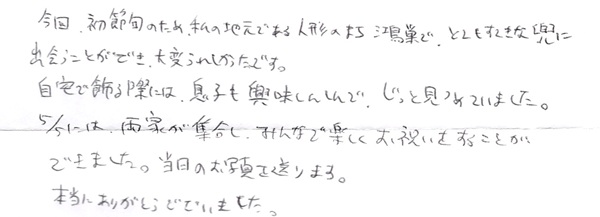 今回、初節句のため、私の地元である人形のまち鴻巣で、とてもすてきな兜に
出会うことができ、大変うれしかったです。
自宅で飾る際には、息子も興味しんしんで、じっと見つめていました。
5/5には、両家が集合し、みんなで楽しくお祝いをすることが
できました。当日のお写真を送ります。
本当にありがとうございました。